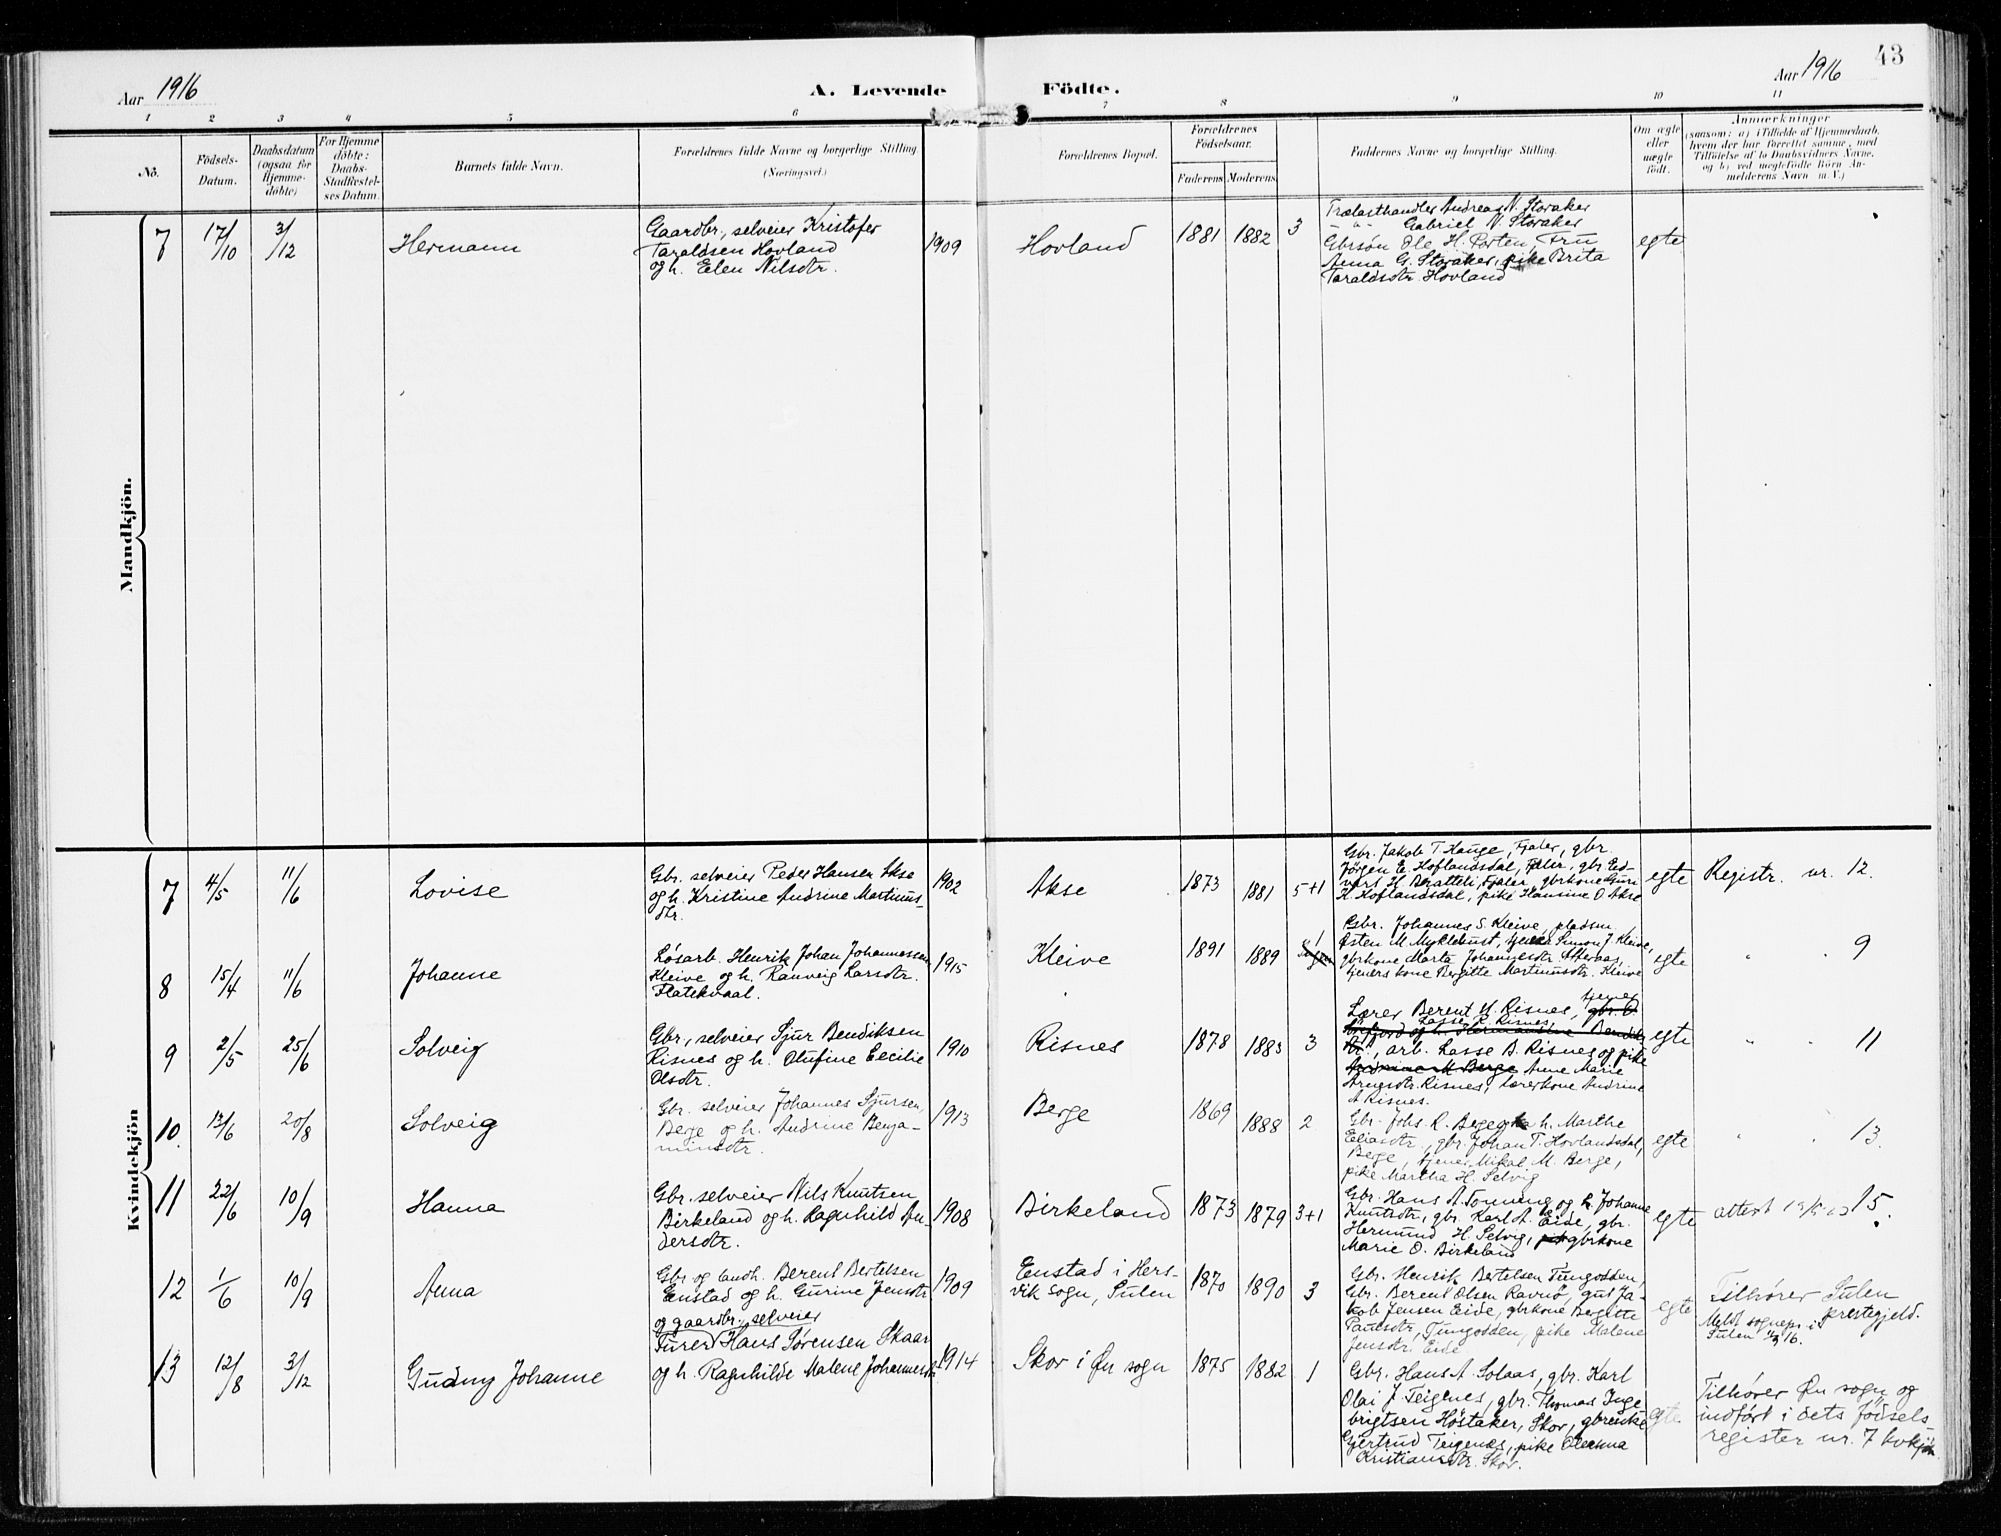 Aar 1916
A. Levende
Födte.
Aar 1916
43
1 2 3 4 5 6 7 8 9 10 11
No.
Födsels-
Datum.
Daabsdatum
(ogsaa for
Hjemme-
döbte)
For Hjemme
döbte:
Daabs-
Stadfæstel-
ses Datum.
Barnets fulde Navn.
Forældrenes fulde Navne og borgerlige Stilling.
(Næringsvei.)
Forældrenes Bopæl.
Forældrenes
Födselsaar.
Faderens Moderens
Faddernes Navne og borgerlige Stilling.
Om ægte
eller
uægte
födt.
Anmærkninger
(saasom: a) i Tilfælde af Hjemmedaab,
hvem der har forrettet samme, med
Tilföielse af to Daabsvidners Navne.
og b) ved uegtefödte Börn An-
melderens Navn m. V.)
Mandkjön.
7 17/10 3/12 Hermann
Gaardbr., selveier Kristofer
Taraldsen Hovland
og h. Elen Nilsdtr.
1909 Hovland 1881 1882 3
Trælasthandler Andreas N. Storaker
" " Gabriel N. Storaker
Gbrsøn Ole H. Porten, Fru
Anna G. Storaker, pike Brita
Taraldsdtr. Hovland
egte
Kvindekjön
7 4/5 11/6 Lovise
Gbr. selveier Peder Hansen Akse
og h. Kristine Andrine Martinus-
dtr.
1902 Akse 1873 1881 5+1
Gbr. Jakob T. Hauge, Fjaler, gbr.
Jørgen E. Hoflandsdal, Fjaler, gbr. Ed-
vart H. Bratteli, Fjaler, gbrkone Guri
K. Hoflandsdal, pike Hansine O. Akse
egte Registr. nr. 12.
8 15/4 11/6 Johanne
Løsarb. Henrik Johan Johannessen
Kleive og h. Ranveig Larsdtr.
Flatekvaal.
1915 Kleive 1891 1889 1
Gbr. Johannes S. Kleive, pladsm.
Østen M. Myklebust, tjener Simon J. Kleive,
gbrkone Marta Johannesdtr.Ætteraas,
tjenerskone Bergitte Martinusdtr. Kleive
egte " . 9
9 2/5 25/6 Solveig
Gbr., selveier Sjur Bendiksen
Risnes og h. Olufine Cecilie
Olsdtr.
1910 Risnes 1878 1883 3
Lærer Berent M. Risnes, tjener
Lasse R. Risnes
arb. Lasse B. Risnes og pike
Anne Marie
Arnesdtr. Risnes, lærerkone Andrine
A Risnes.
egte " . 11
10. 13/6 20/8 Solveig
Gbr. selveier Johannes Sjursen
Berge og h. Andrine Benja-
minsdtr.
1913 Berge 1869 1888 2
Gbr. Johs. R. Berge og h. Marthe
Eliasdtr., gbr. Johan T. Hovlandsdal,
Berge, tjener Mikal M. Berge,
pike Martha H. Selvig
egte " . 13.
11 22/6 10/9 Hanna
Gbr. selveier Nils Knutsen
Birkeland og h. Ragnhild An-
dersdtr.
1908 Birkeland 1873 1879 3+1
Gbr. Hans A. Tonning og h. Johanne
Knutsdtr, gbr. Karl A. Eide, gbr.
Hermund H. Selvig, gbrkone
Marie O. Birkeland
egte attest 15.
12 1/6 10/9 Anna
Gbr og landh. Berent Bertelsen
Enstad og h. Gurine Jensdtr
1909 Enstad i Hers-
vik sogn, Sulen 1870 1890 3
Gbr. Henrik Bertelsen Tungodden,
Gbr. Berent Olsen Ravnø, gut Ja-
kob Jensen Eide, gbrkone Bergitte
Paulsdtr, Tungodden, pike Malene
Jensdtr. Eide
egte
Tilhører Sulen
prestegjeld.
Meldt sognepr. i
Sulen 16.
13 12/8 3/12 Gudny Johanne
og gaardbr., selveier
Furer Hans Sørensen Skaar
og h. Ragnhilde Malene Johannesdtr
1914 Skor i Øn sogn 1875 1882 1
Gbr. Hans A. Solaas, gbr. Karl
Olai J. Teigenes, gbr. Thomas Inge
brigtsen Høstaker, Skor, gbrenke
Gjertrud Teigenes, pike Oleanna
Kristiansdtr. Skor.
egte
Tilhører Øn sogn og
indført i dets fødsels-
register nr. 7 kvkjøn